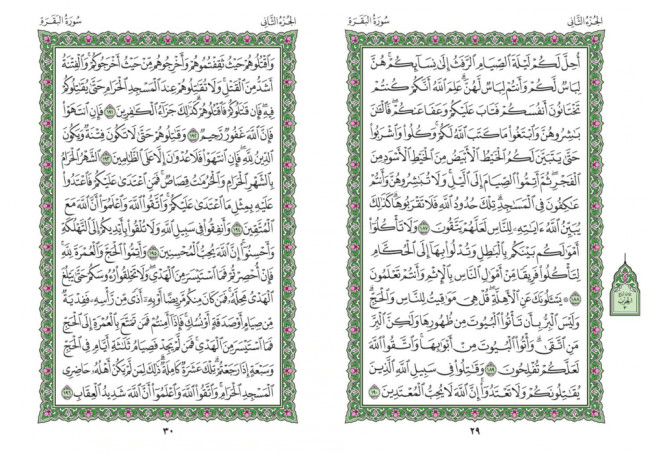 الجزء الثاني
سورة البقرة
أُحِلَّ لَكُمْ لَيْلَةَ ٱلصِّيَامِ ٱلرَّفَثُ إِلَىٰ نِسَآئِكُمْ ۚ هُنَّ
لِبَاسٌ لَّكُمْ وَأَنتُمْ لِبَاسٌ لَّهُنَّ ۗ عَلِمَ ٱللَّهُ أَنَّكُمْ كُنتُمْ
تَخْتَانُونَ أَنفُسَكُمْ فَتَابَ عَلَيْكُمْ وَعَفَا عَنكُمْ ۖ فَٱلْـَٰٔنَ
بَـٰشِرُوهُنَّ وَٱبْتَغُوا۟ مَا كَتَبَ ٱللَّهُ لَكُمْ ۚ وَكُلُوا۟ وَٱشْرَبُوا۟
حَتَّىٰ يَتَبَيَّنَ لَكُمُ ٱلْخَيْطُ ٱلْأَبْيَضُ مِنَ ٱلْخَيْطِ ٱلْأَسْوَدِ مِنَ
ٱلْفَجْرِ ۖ ثُمَّ أَتِمُّوا۟ ٱلصِّيَامَ إِلَى ٱلَّيْلِ ۚ وَلَا تُبَـٰشِرُوهُنَّ وَأَنتُمْ
عَـٰكِفُونَ فِى ٱلْمَسَـٰجِدِ ۗ تِلْكَ حُدُودُ ٱللَّهِ فَلَا تَقْرَبُوهَا ۗ كَذَٰلِكَ
يُبَيِّنُ ٱللَّهُ ءَايَـٰتِهِۦ لِلنَّاسِ لَعَلَّهُمْ يَتَّقُونَ ١٨٧ وَلَا تَأْكُلُوٓا۟
أَمْوَٰلَكُم بَيْنَكُم بِٱلْبَـٰطِلِ وَتُدْلُوا۟ بِهَآ إِلَى ٱلْحُكَّامِ
لِتَأْكُلُوا۟ فَرِيقًا مِّنْ أَمْوَٰلِ ٱلنَّاسِ بِٱلْإِثْمِ وَأَنتُمْ تَعْلَمُونَ
١٨٨ ۞ يَسْـَٔلُونَكَ عَنِ ٱلْأَهِلَّةِ ۖ قُلْ هِىَ مَوَٰقِيتُ لِلنَّاسِ وَٱلْحَجِّ ۗ
وَلَيْسَ ٱلْبِرُّ بِأَن تَأْتُوا۟ ٱلْبُيُوتَ مِن ظُهُورِهَا وَلَـٰكِنَّ ٱلْبِرَّ
مَنِ ٱتَّقَىٰ ۗ وَأْتُوا۟ ٱلْبُيُوتَ مِنْ أَبْوَٰبِهَا ۚ وَٱتَّقُوا۟ ٱللَّهَ
لَعَلَّكُمْ تُفْلِحُونَ ١٨٩ وَقَـٰتِلُوا۟ فِى سَبِيلِ ٱللَّهِ ٱلَّذِينَ
يُقَـٰتِلُونَكُمْ وَلَا تَعْتَدُوٓا۟ ۚ إِنَّ ٱللَّهَ لَا يُحِبُّ ٱلْمُعْتَدِينَ ١٩٠
٢٩
الجزء الثاني
سورة البقرة
وَٱقْتُلُوهُمْ حَيْثُ ثَقِفْتُمُوهُمْ وَأَخْرِجُوهُم مِّنْ حَيْثُ أَخْرَجُوكُمْ ۚ وَٱلْفِتْنَةُ
أَشَدُّ مِنَ ٱلْقَتْلِ ۚ وَلَا تُقَـٰتِلُوهُمْ عِندَ ٱلْمَسْجِدِ ٱلْحَرَامِ حَتَّىٰ يُقَـٰتِلُوكُمْ
فِيهِ ۖ فَإِن قَـٰتَلُوكُمْ فَٱقْتُلُوهُمْ ۗ كَذَٰلِكَ جَزَآءُ ٱلْكَـٰفِرِينَ ١٩١ فَإِنِ ٱنتَهَوْا۟
فَإِنَّ ٱللَّهَ غَفُورٌ رَّحِيمٌ ١٩٢ وَقَـٰتِلُوهُمْ حَتَّىٰ لَا تَكُونَ فِتْنَةٌ وَيَكُونَ
ٱلدِّينُ لِلَّهِ ۖ فَإِنِ ٱنتَهَوْا۟ فَلَا عُدْوَٰنَ إِلَّا عَلَى ٱلظَّـٰلِمِينَ ١٩٣ ٱلشَّهْرُ ٱلْحَرَامُ
بِٱلشَّهْرِ ٱلْحَرَامِ وَٱلْحُرُمَـٰتُ قِصَاصٌ ۚ فَمَنِ ٱعْتَدَىٰ عَلَيْكُمْ فَٱعْتَدُوا۟
عَلَيْهِ بِمِثْلِ مَا ٱعْتَدَىٰ عَلَيْكُمْ ۚ وَٱتَّقُوا۟ ٱللَّهَ وَٱعْلَمُوٓا۟ أَنَّ ٱللَّهَ مَعَ
ٱلْمُتَّقِينَ ١٩٤ وَأَنفِقُوا۟ فِى سَبِيلِ ٱللَّهِ وَلَا تُلْقُوا۟ بِأَيْدِيكُمْ إِلَى ٱلتَّهْلُكَةِ ۛ
وَأَحْسِنُوٓا۟ ۛ إِنَّ ٱللَّهَ يُحِبُّ ٱلْمُحْسِنِينَ ١٩٥ وَأَتِمُّوا۟ ٱلْحَجَّ وَٱلْعُمْرَةَ لِلَّهِ ۚ
فَإِنْ أُحْصِرْتُمْ فَمَا ٱسْتَيْسَرَ مِنَ ٱلْهَدْىِ ۖ وَلَا تَحْلِقُوا۟ رُءُوسَكُمْ حَتَّىٰ يَبْلُغَ
ٱلْهَدْىُ مَحِلَّهُۥ ۚ فَمَن كَانَ مِنكُم مَّرِيضًا أَوْ بِهِۦٓ أَذًى مِّن رَّأْسِهِۦ فَفِدْيَةٌ
مِّن صِيَامٍ أَوْ صَدَقَةٍ أَوْ نُسُكٍ ۚ فَإِذَآ أَمِنتُمْ فَمَن تَمَتَّعَ بِٱلْعُمْرَةِ إِلَى ٱلْحَجِّ
فَمَا ٱسْتَيْسَرَ مِنَ ٱلْهَدْىِ ۚ فَمَن لَّمْ يَجِدْ فَصِيَامُ ثَلَـٰثَةِ أَيَّامٍ فِى ٱلْحَجِّ
وَسَبْعَةٍ إِذَا رَجَعْتُمْ ۗ تِلْكَ عَشَرَةٌ كَامِلَةٌ ۗ ذَٰلِكَ لِمَن لَّمْ يَكُنْ أَهْلُهُۥ حَاضِرِى
ٱلْمَسْجِدِ ٱلْحَرَامِ ۚ وَٱتَّقُوا۟ ٱللَّهَ وَٱعْلَمُوٓا۟ أَنَّ ٱللَّهَ شَدِيدُ ٱلْعِقَابِ ١٩٦
٣٠